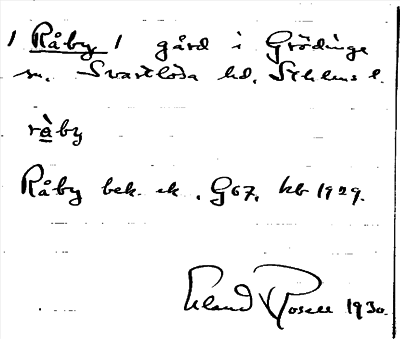 / Råby / gård i Grödinge
sn. Svartlösa hd. Sthlms l.
rå̀by
Råby bek. ek. G67. kb 1929.
Erland Rosell 1930.